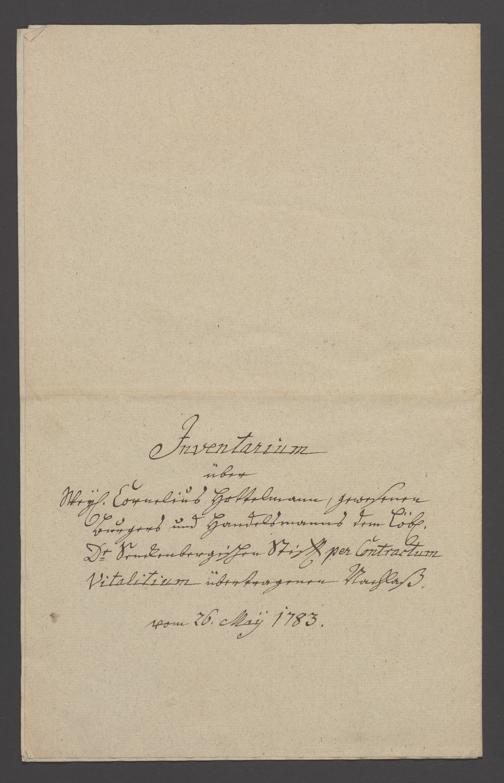 Inventarium
über
Weyl. Cornelius Hottelmann, gewesenen
Burgers und Handelsmanns dem Löbl.
Dr. Senckenbergischen Stifft per Contractum
Vitalitium übertragenen Nachlaß.
vom 26. Maÿ 1783.